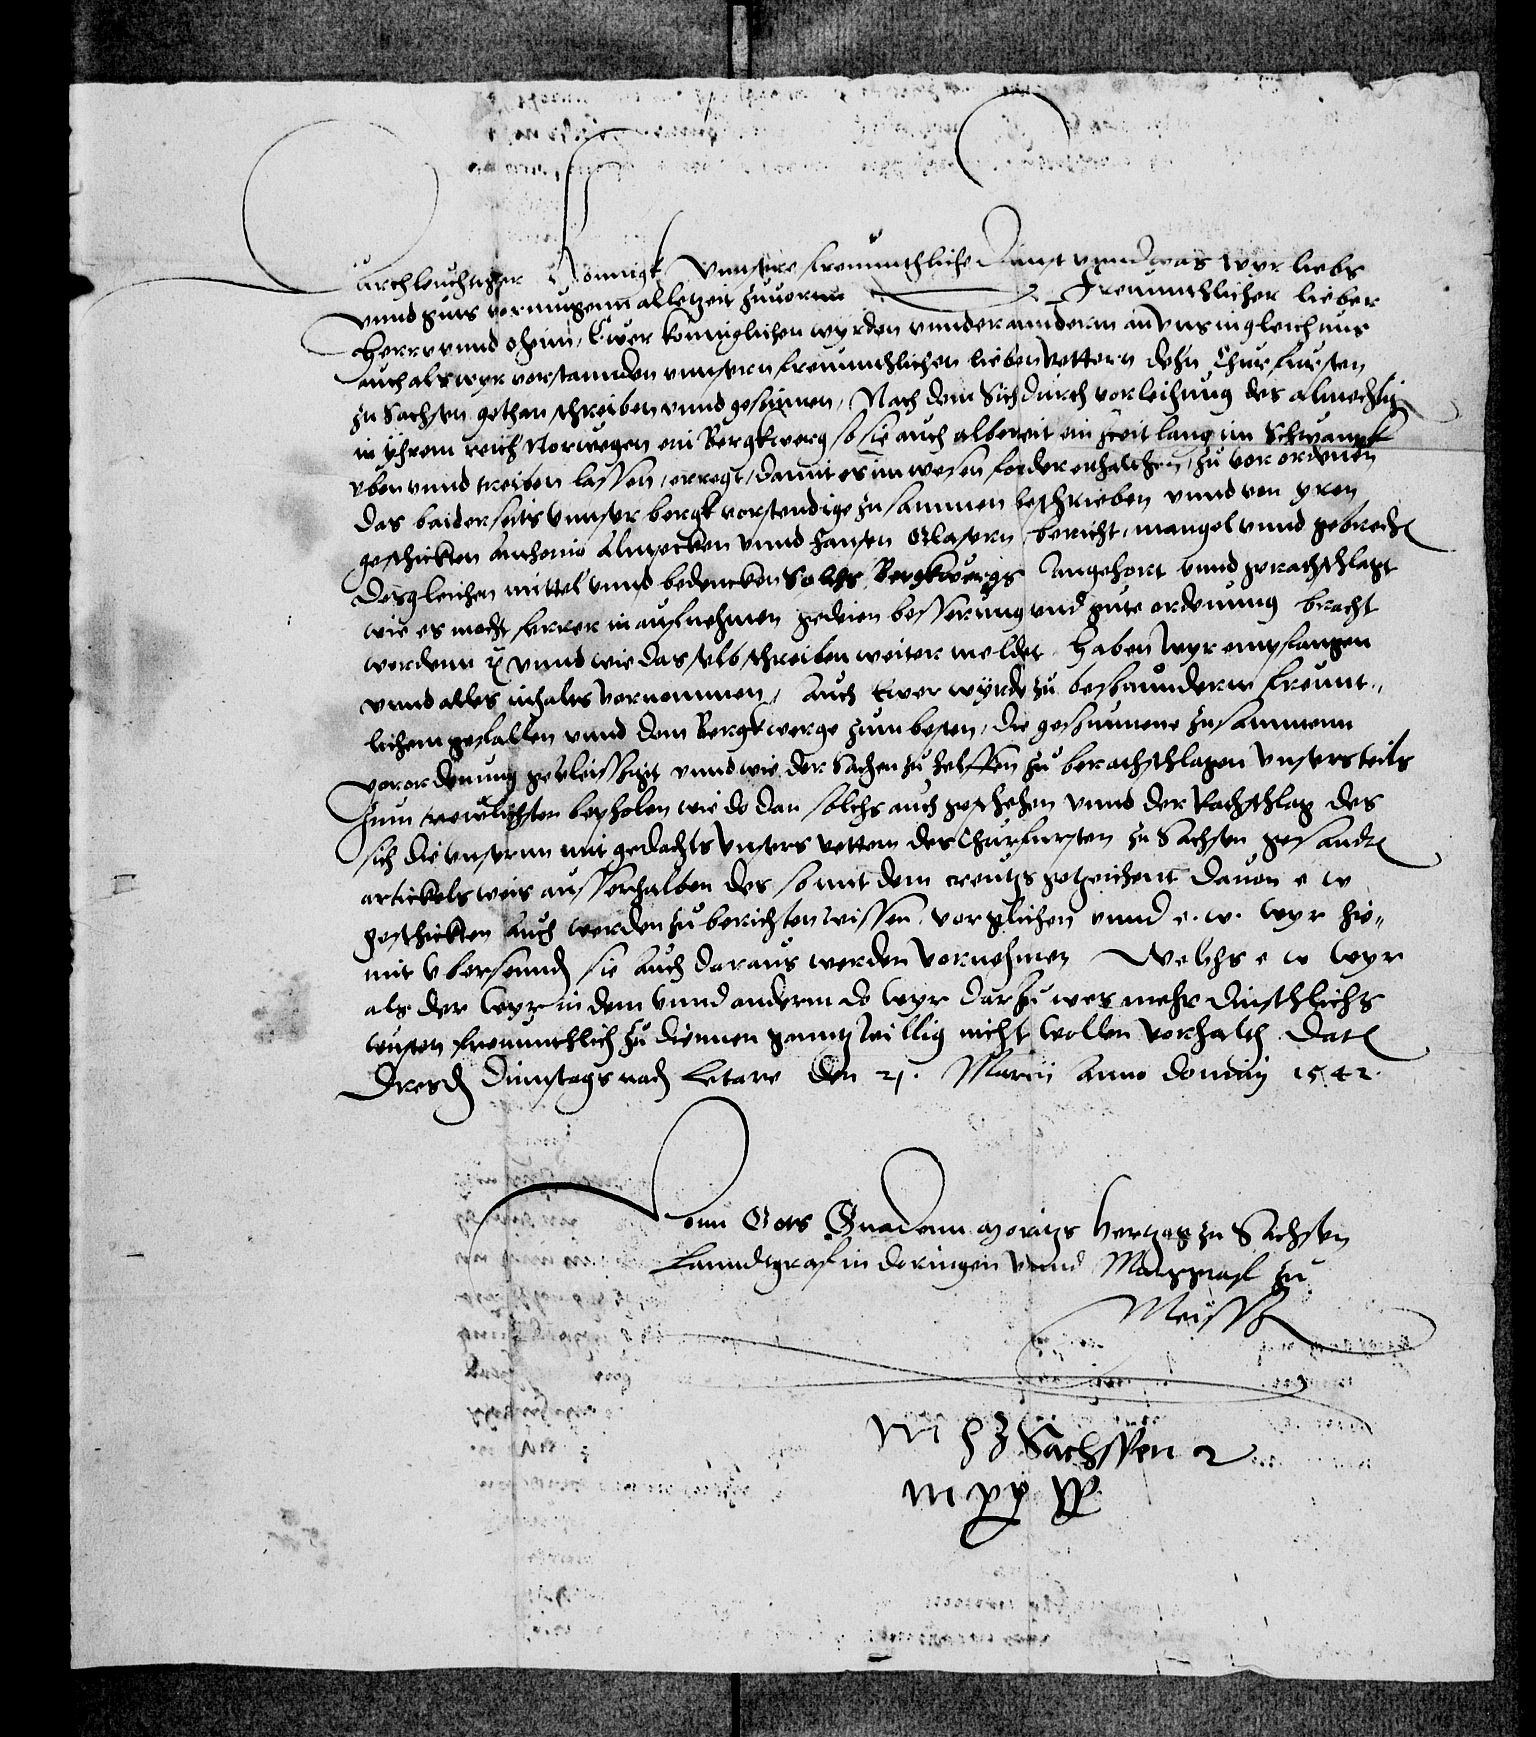 Durchleuchtigster Konnigk, Unnsere freuntliche dinst unnd was wyr liebs
unnd guts vormugenn alletzeit zuuornn Freunntlicher lieber
Herr unnd oheim, Ewer koniglichen wyrden unnder annderm an uns in gleichnus
auch als wyr vorstannden unnsern freunntlichen lieben Vettern dehn Churfursten
zu Sachsen gethan schreiben unnd gesinnen, Nach dem sich durch vorleihung des almechtig
in yhrem reich Norwegen ein Bergkwerg so sie auch albereit ein zeit lang im schwanck
uben unnd treiben lassen, erregt, damit es im wesen forder erhalthen, zu vorordenen
das baiderseits unnser bergkvorstendige zusammen beschrieben unnd von yren
geschickten Anthonio unnd Hansen Glasern bericht, mangel unnd gebreche
desgleichen mittel unnd bedencken solchs Bergkwergs angehort unnd geratschlagt
wie es mocht ferrer in aufnehmen gedeien besserung und gute ordenung bracht
werdenn unnd wie das selb schreiben weiter meldet, haben wyr empfangen
unnd alles inhalts vornommen, Auch Ewer wyrde zu besounderm freunt-
lichem gefallen unnd dem Bergkwerge zum besten, die gesunnene zusammenn
vorordenung gefleissigt unnd wie der sachen zu helffen zu berathschlagen unsersteils
zum treulichsten bepholen wie do dan solchs auch geschehen unnd der Rathschlag des
sich die unsernn mit gedachts unsers vettern des Churfursten zu Sachsen gesandte
artickels weis ausserhalben des so mit dem creutz getzeichent dauon e w
geschickten auch werden zu berichten wissen, vorglichen unnd e. w. wyr hie-
mit ubersennd sie auch daraus werden vornehmen Welchs e w wyr
als der wyr in dem unnd anderm do wyr darzu was mehr dinstlichs
wusten freunntlich zu diennen gantz willig nicht wollen vorhalth Dat
Dresd Dinstags nach Letare den 21. Marcii Anno domini 1542.
Vonn Gots Gnadenn Moritz Hertzog zu Sachsen
Lanndtgraf in Doringen unnd Marggraf zu
Meissen
M H Z Sachssen
m pp